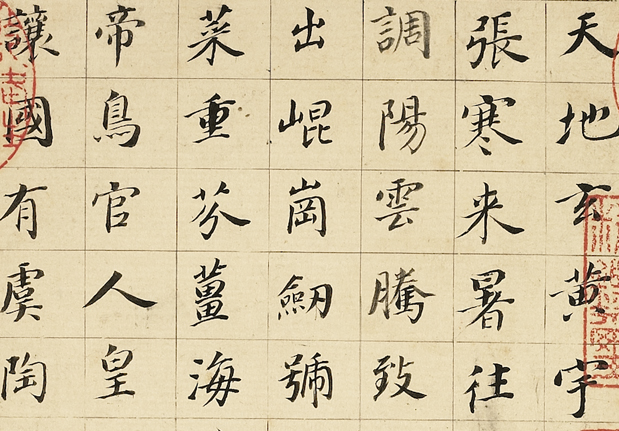 天地玄黃宇
張寒来暑往
調陽雲騰致
出崐崗劒號
菜重芥薑海
帝鳥官人皇
讓國有虞陶